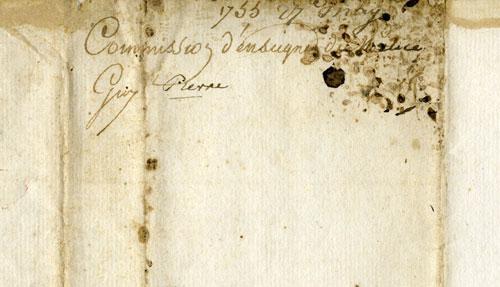 1755 27
Commission d'enseigne de Milice
Guy Pierre